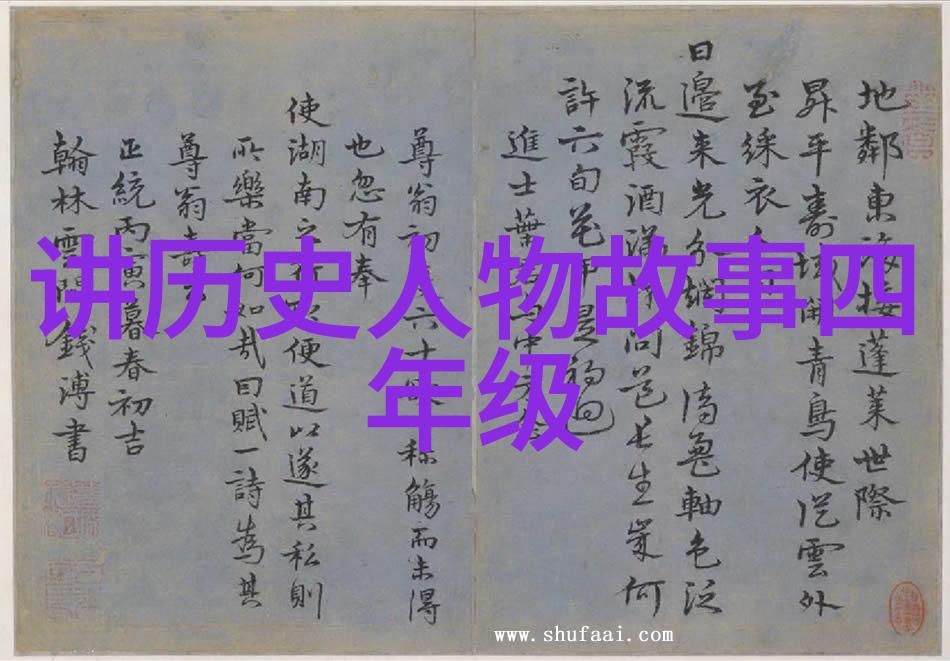 讲历史人物故事四
年级
地鄰東海接蓬萊世際
昇平壽域開青鳥使從雲外
至綵衣
日邊來光分 錦 軸色泛
流霞酒滿 問 長生 何
許六旬花甲是初
進士葉
尊翁初 六十 稱觴而未得
也忽有奉
使湖南之行 便道以遂其私則
所樂當何如哉因賦一詩為其
尊翁壽云
正統丙寅暮春初吉
翰林雲間錢溥書
www.shufaai.com